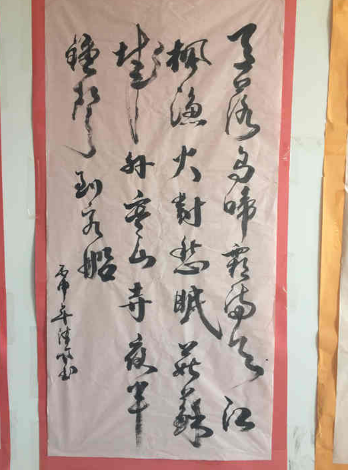 月落乌啼霜满天江
枫渔火对愁眠苏
城外寒山寺夜半
钟声到客船
丙申年
书